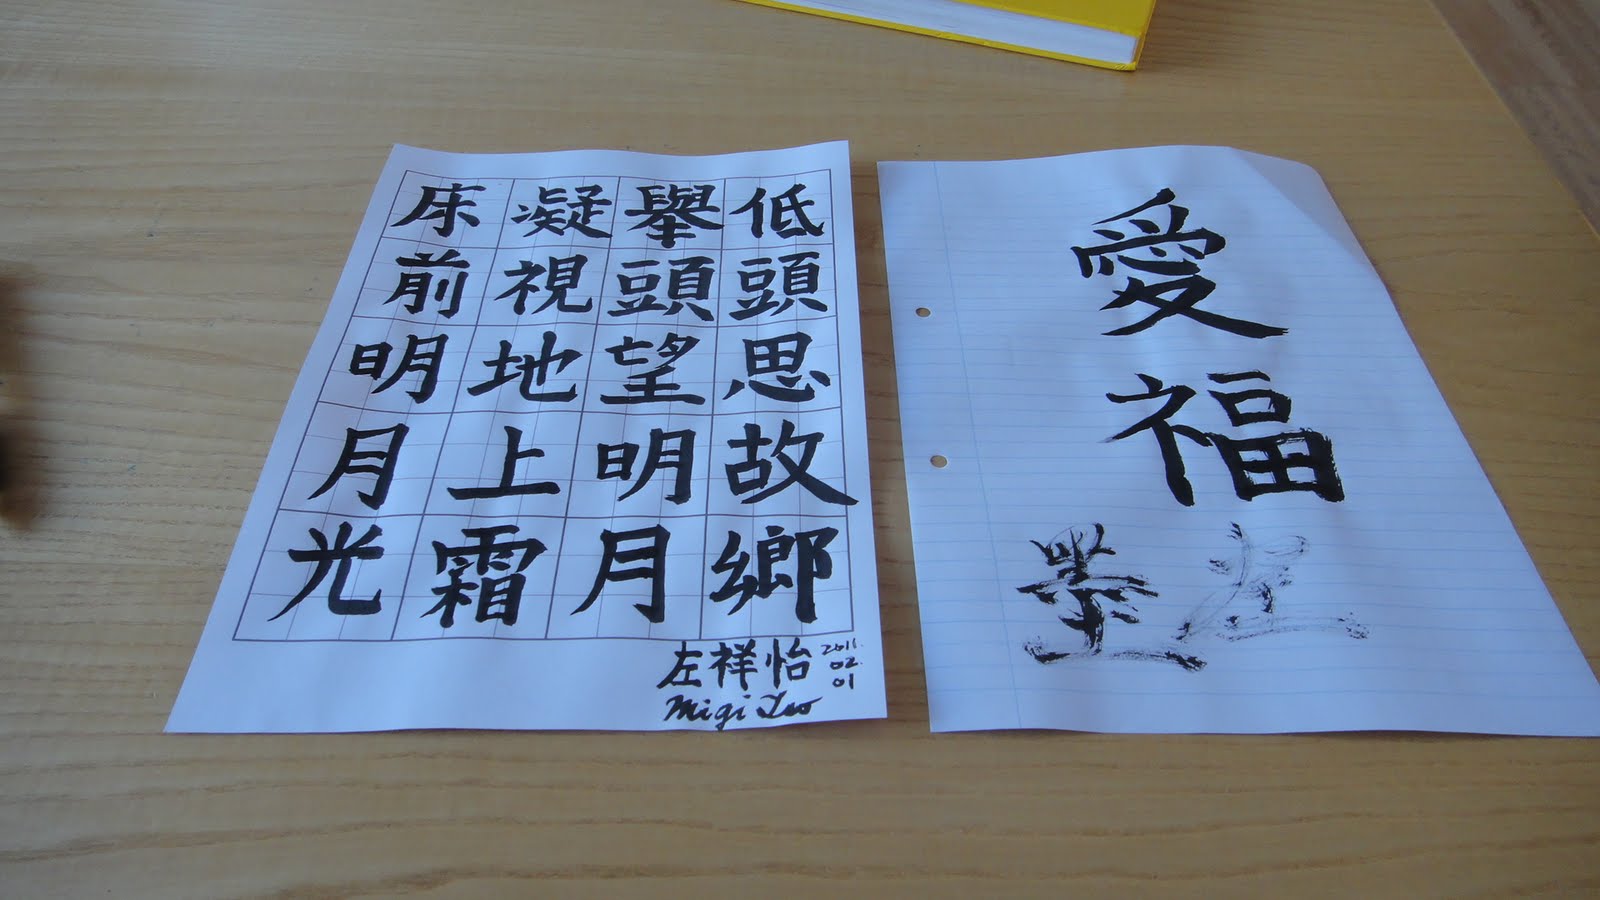 床前明月光
凝視地上霜
舉頭望明月
低頭思故鄉
左祥怡
2011.
02.
01
Migi Tso
愛
福
左